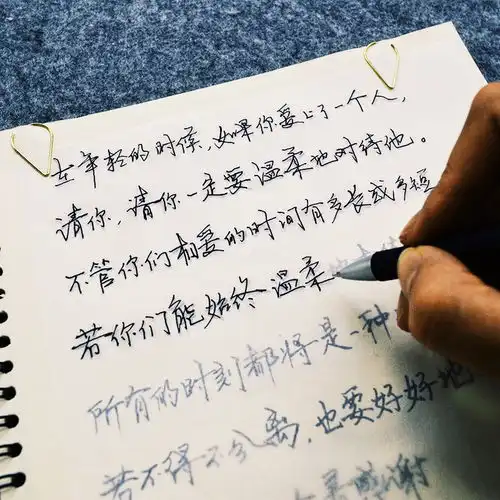 在年轻的时候,如果你爱上了一个人,
请你,请你一定要温柔地对待他。
不管你们相爱的时间有多长或多短
若你们能始终温柔
所有的时刻都将是一种
若不得不分离,也要好好地
感谢